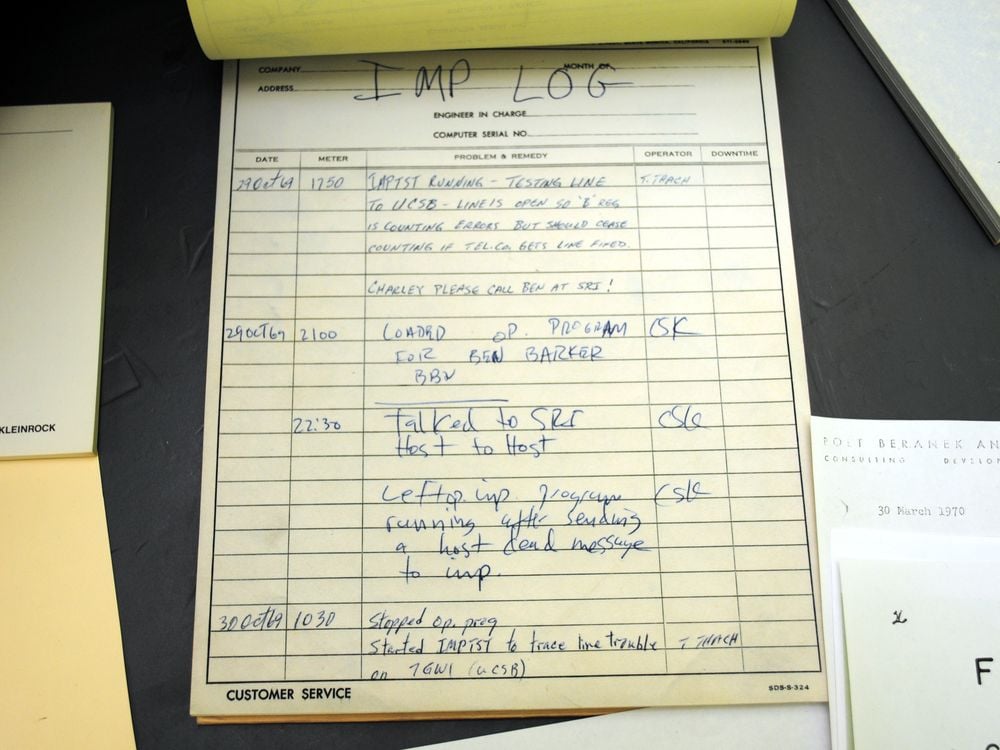 COMPANY MONTH OF
IMP LOG
ADDRESS
ENGINEER IN CHARGE
COMPUTER SERIAL NO.
DATE METER PROBLEM & REMEDY OPERATOR DOWNTIME
29Oct69 1750 IMPTST RUNNING - TESTING LINE T. THACH
TO UCSB - LINE IS OPEN SO 'B' REG
IS COUNTING ERRORS BUT SHOULD CEASE
COUNTING IF TEL.CO. GETS LINE FIXED.
CHARLEY PLEASE CALL BEN AT SRI!
29OCT69 2100 LOADED OP. PROGRAM CSK
FOR BEN BARKER
BBN
22:30 Talked to SRI CSK
Host to Host
Left op. imp. program CSK
running after sending
a host dead message
to imp.
30Oct69 1030 Stopped Op. prog
Started IMPTST to trace line trouble T THACH
on (UCSB)
CUSTOMER SERVICE SDS-S-324
KLEINROCK
BOLT BERANEK AN
CONSULTING DEVELOP
30 March 1970
F